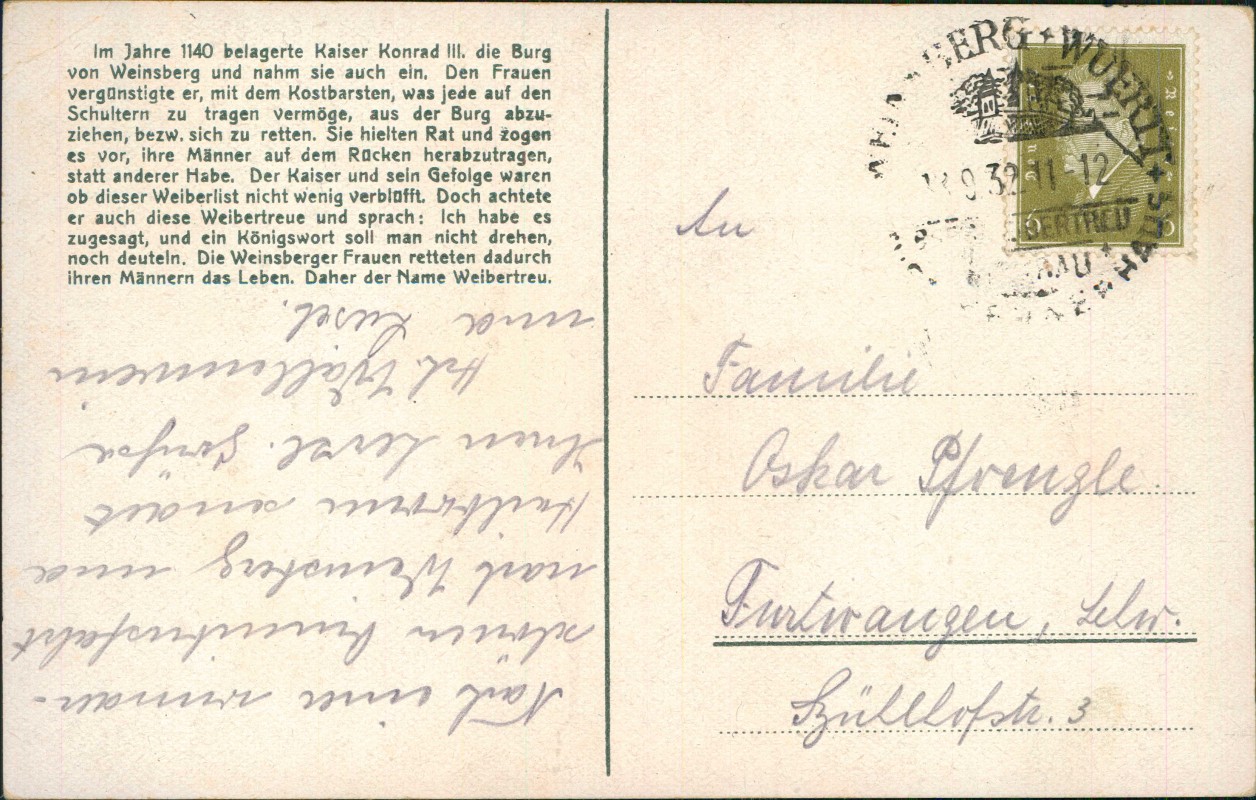 Im Jahre 1140 belagerte Kaiser Konrad III. die Burg
von Weinsberg und nahm sie auch ein. Den Frauen
vergünstigte er, mit dem Kostbarsten, was jede auf den
Schultern zu tragen vermöge, aus der Burg abzu-
ziehen, bezw. sich zu retten. Sie hielten Rat und zogen
es vor, ihre Männer auf dem Rücken herabzutragen,
statt anderer Habe. Der Kaiser und sein Gefolge waren
ob dieser Weiberlist nicht wenig verblüfft. Doch achtete
er auch diese Weibertreue und sprach: Ich habe es
zugesagt, und ein Königswort soll man nicht drehen,
noch deuteln. Die Weinsberger Frauen retteten dadurch
ihren Männern das Leben. Daher der Name Weibertreu.
Nach einer wunder-
schönen
nach Weinsberg und
Heilbronn sendet
Ihnen herzl. Grüße
und Liesel.
BERG + WUERTT +
9.32.11-12
6
An
Familie
Oskar Pfrengle
Furtwangen, Schw.
3